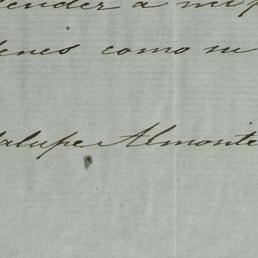 tender a mi
denes como su
dalupe Almonte